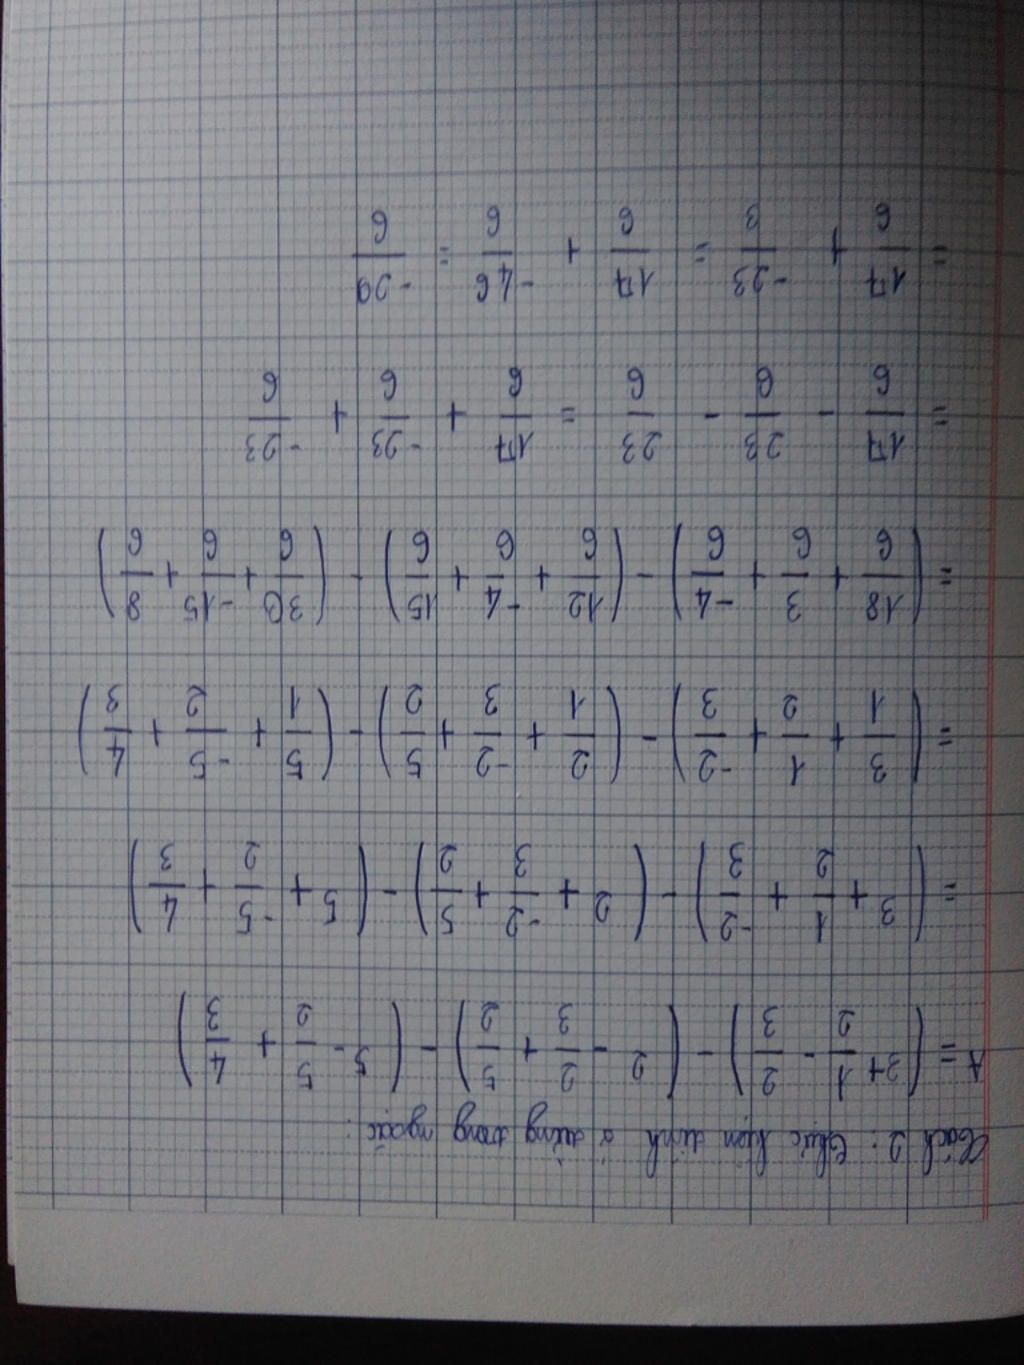 Cách 2: Thực hiện tính ở từng trong ngoặc:
A = (3 + 1/2 - 2/3) - (2 - 2/3 + 5/2) - (5 - 5/2 + 4/3)
= (3 + 1/2 + -2/3) - (2 + -2/3 + 5/2) - (5 + -5/2 + 4/3)
= (3/1 + 1/2 + -2/3) - (2/1 + -2/3 + 5/2) - (5/1 + -5/2 + 4/3)
= (18/6 + 3/6 + -4/6) - (12/6 + -4/6 + 15/6) - (30/6 + -15/6 + 8/6)
= 17/6 - 23/6 - 23/6 = 17/6 + -23/6 + -23/6
= 17/6 + -23/3 = 17/6 + -46/6 = -29/6